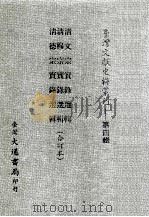 臺灣文獻史料叢刊 第四輯
清文宗實錄選輯
清穆宗實錄選輯
清德宗實錄選輯
(合訂本)
臺灣大通書局印行